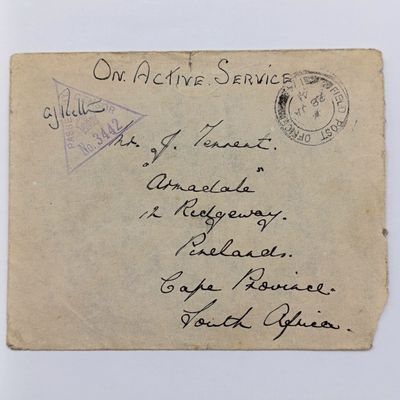 On Active Service
FIELD POST OFFICE
28 JA
41
PASSED
No. 3442
Mr. J. Tennent.
"Armadale"
12 Ridgeway.
Pinelands.
Cape Province.
South Africa.